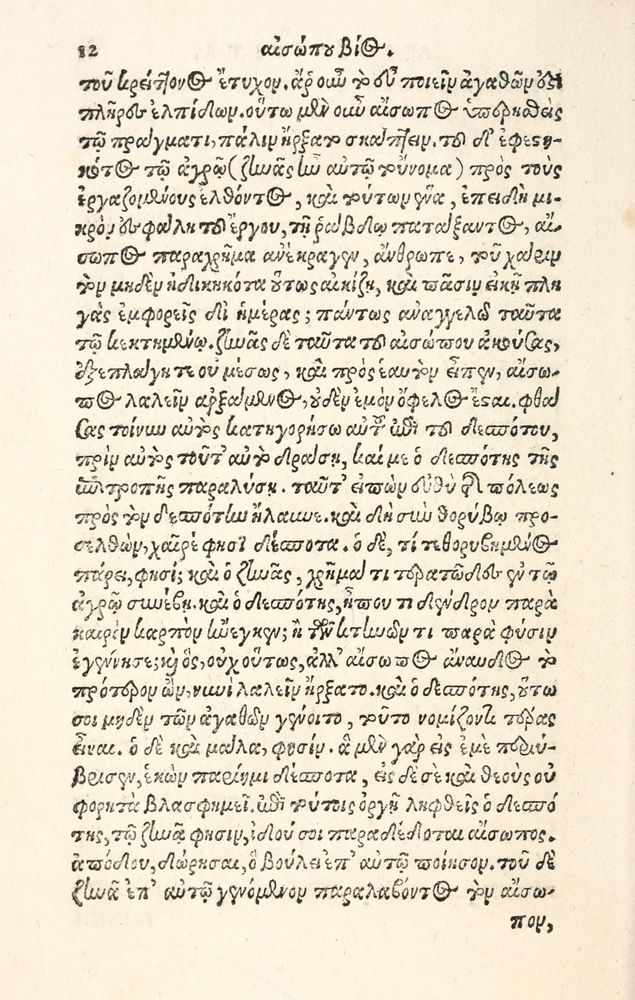 12 αἰσώπου βίος.
τοῦ κρείττονος ἔτυχον. ἆρ' οὖν τὸ εὖ ποιεῖν ἀγαθῶν ἐστὶ
πλῆρες ἐλπίδων. οὕτω μὲν οὖν αἴσωπος ὑπερησθεὶς
τῷ πράγματι, πάλιν ἤρξατο σκάπτειν. τοῦ δ' ἐφεστη-
κότος τῷ ἀγρῷ (ζηνᾶς ἦν αὐτῷ τοὔνομα) πρὸς τοὺς
ἐργαζομένους ἐλθόντος, καὶ τούτων ἕνα, ἐπειδὴ μι-
κρὸν ἐσφάλη τοῦ ἔργου, τῇ ῥάβδῳ πατάξαντος, αἴ-
σωπος παραχρῆμα ἀνέκραγεν, ἄνθρωπε, τοῦ χάριν
τὸν μηδὲν ἠδικηκότα οὕτως αἰκίζῃ, καὶ πᾶσιν εἰκῆ πλη
γὰς ἐμφορεῖς δι' ἡμέρας; πάντως ἀναγγελῶ ταῦτα
τῷ κεκτημένῳ. ζηνᾶς δὲ ταῦτα τοῦ αἰσώπου ἀκούσας,
ἐξεπλάγη τε οὐ μέσως, καὶ πρὸς ἑαυτὸν εἶπεν, αἴσω-
πος λαλεῖν ἀρξάμενος, οὐδὲν ἐμὸν ὄφελος ἔσται. φθά
σας τοίνυν αὐτὸς κατηγορήσω αὐτοῦ ἐπὶ τοῦ δεσπότου,
πρὶν αὐτὸς τοῦτ' αὐτὸ δράσῃ, καί με ὁ δεσπότης τῆς
ἐπιτροπῆς παραλύσῃ. ταῦτ' εἰπὼν εὐθὺ τῆς πόλεως
πρὸς τὸν δεσπότην ἤλαυνε. καὶ δὴ σὺν θορύβῳ προ-
σελθών, χαῖρέ φησι δέσποτα. ὁ δέ, τί τεθορυβημένος
πάρει, φησί; καὶ ὁ ζηνᾶς, χρῆμά τι τερατῶδες ἐν τῷ
ἀγρῷ συνέβη. καὶ ὁ δεσπότης, ἦπού τι δένδρον παρὰ
καιρὸν καρπὸν ἤνεγκεν; ἢ τῶν κτηνῶν τι παρὰ φύσιν
ἐγέννησε; καὶ ὅς, οὐχ οὕτως, ἀλλ' αἴσωπος ἄναυδος τὸ
πρότερον ὤν, νυνὶ λαλεῖν ἤρξατο. καὶ ὁ δεσπότης, οὕτω
σοι μηδὲν τῶν ἀγαθῶν γένοιτο, τοῦτο νομίζοντι τέρας
εἶναι. ὁ δὲ καὶ μάλα, φησίν. ἃ μὲν γὰρ εἰς ἐμὲ περιύ-
βρισεν, ἑκὼν παρίημι δέσποτα, εἰς δὲ σὲ καὶ θεοὺς οὐ
φορητὰ βλασφημεῖ. ἐπὶ τούτοις ὀργῇ ληφθεὶς ὁ δεσπό
της, τῷ ζηνᾷ φησιν, ἰδού σοι παραδέδοται αἴσωπος.
ἀπόδου, δώρησαι, ὃ βούλει ἐπ' αὐτῷ ποίησον. τοῦ δὲ
ζηνᾶ ἐπ' αὐτῷ γενόμενον παραλαβόντος τὸν αἴσω-
πον,